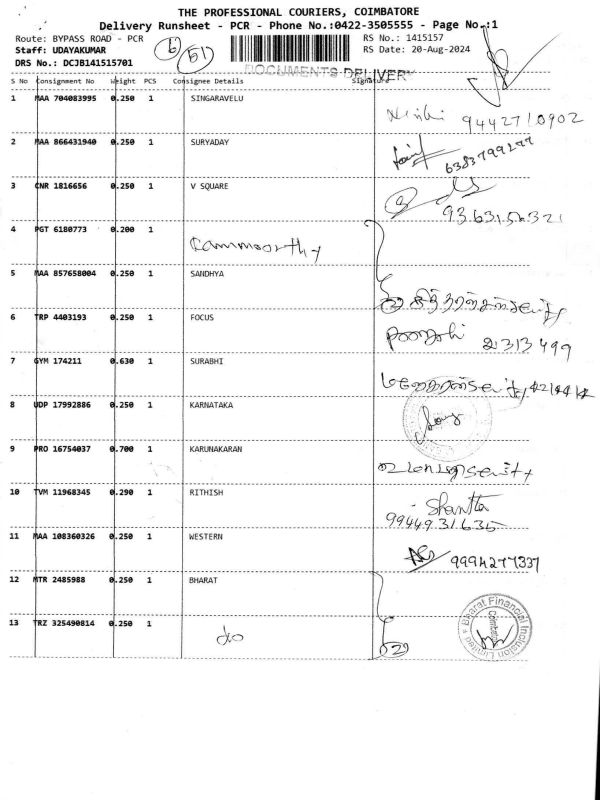 THE PROFESSIONAL COURIERS, COIMBATORE
Delivery Runsheet - PCR - Phone No.:0422-3505555 - Page No.:1
Route: BYPASS ROAD - PCR RS No.: 1415157
Staff: UDAYAKUMAR RS Date: 20-Aug-2024
DRS No.: DCJB141515701
DOCUMENTS DELIVERY
S No Consignment No Weight PCS Consignee Details Signature
1 MAA 704083995 0.250 1 SINGARAVELU
9442710902
2 MAA 866431940 0.250 1 SURYADAY
6383799277
3 CNR 1816656 0.250 1 V SQUARE
9363156321
4 PGT 6180773 0.200 1 Rammoorthy
5 MAA 857658004 0.250 1 SANDHYA
6 TRP 4403193 0.250 1 FOCUS
2313499
7 GYM 174211 0.630 1 SURABHI
8 UDP 17992886 0.250 1 KARNATAKA
9 PRO 16754037 0.700 1 KARUNAKARAN
10 TVM 11968345 0.290 1 RITHISH
Shantta
9944931635
11 MAA 108360326 0.250 1 WESTERN
9994277337
12 MTR 2485988 0.250 1 BHARAT
13 TRZ 325490814 0.250 1 do
Bharat Financial Inclusion Limited
Coimbatore